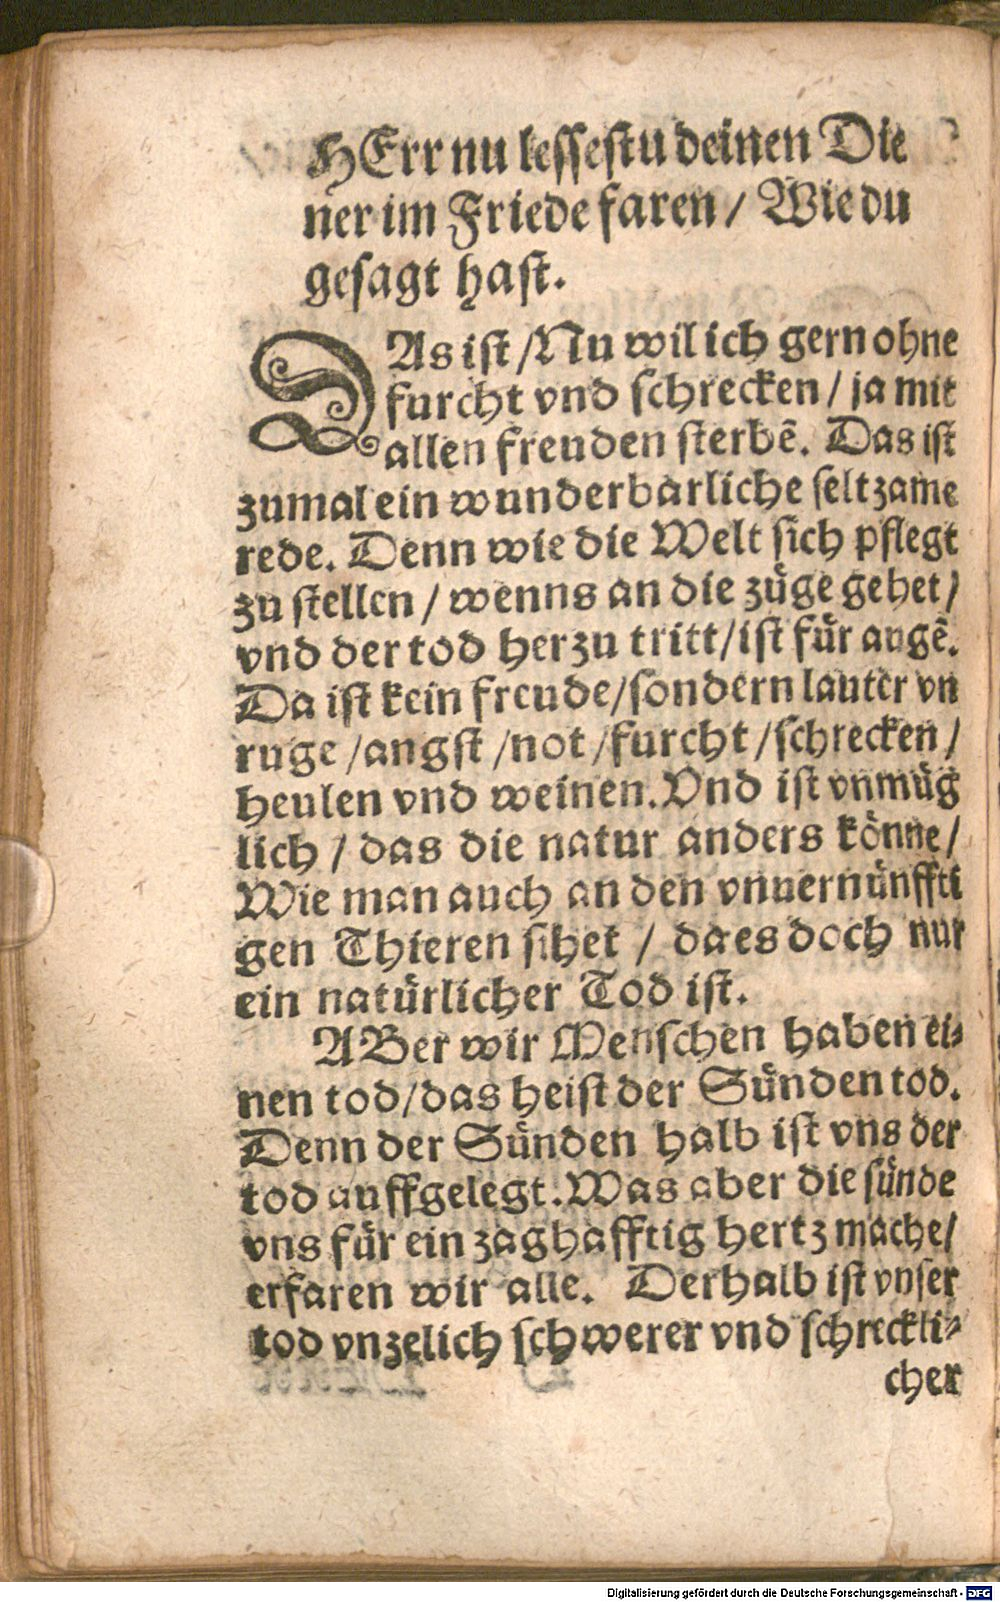 HErr nu lessestu deinen Die
ner im Friede faren / Wie du
gesagt hast.
DAs ist / Nu wil ich gern ohne
furcht vnd schrecken / ja mit
allen freuden sterbẽ. Das ist
zumal ein wunderbarliche seltzame
rede. Denn wie die Welt sich pflegt
zu stellen / wenns an die zuͤge gehet /
vnd der tod herzu tritt / ist fuͤr augẽ.
Da ist kein freude / sondern lauter vn
ruge / angst / not / furcht / schrecken /
heulen vnd weinen. Vnd ist vnmuͤg
lich / das die natur anders koͤnne /
Wie man auch an den vnuernuͤnffti
gen Thieren sihet / da es doch nur
ein natuͤrlicher Tod ist.
ABer wir Menschen haben ei-
nen tod / das heist der Suͤnden tod.
Denn der Suͤnden halb ist vns der
tod auffgelegt. Was aber die suͤnde
vns fuͤr ein zaghafftig hertz mache /
erfaren wir alle. Derhalb ist vnser
tod vnzelich schwerer vnd schreckli-
cher
Digitalisierung gefördert durch die Deutsche Forschungsgemeinschaft - DFG